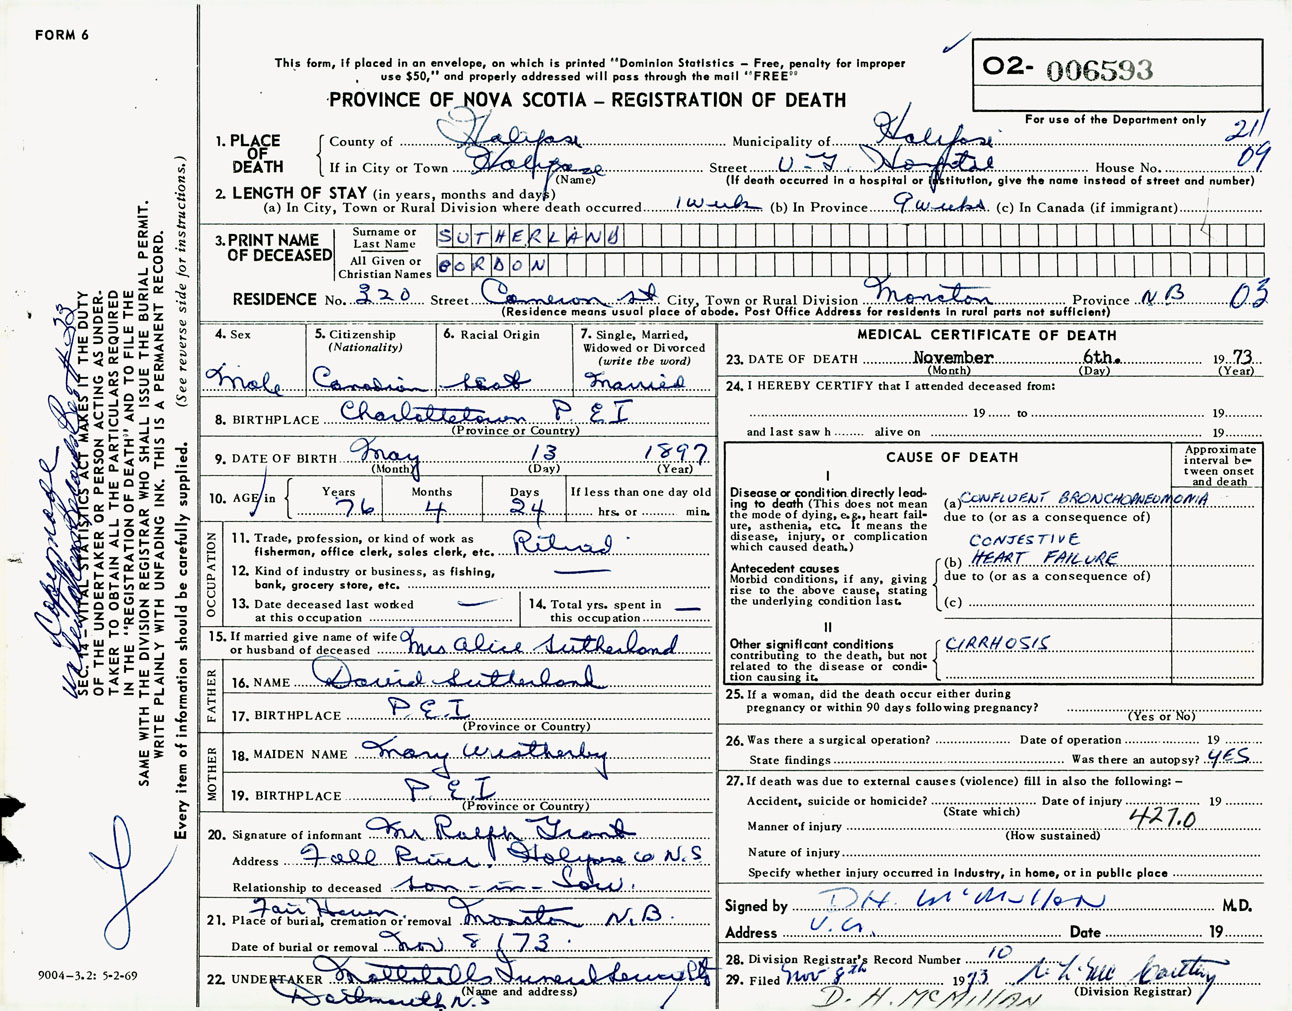 FORM 6
This form, if placed in an envelope, on which is printed "Dominion Statistics – Free, penalty for improper
use $50," and properly addressed will pass through the mail "FREE"
PROVINCE OF NOVA SCOTIA – REGISTRATION OF DEATH
O2- 006593
For use of the Department only
211
09
1. PLACE OF DEATH
County of Halifax Municipality of Halifax
If in City or Town Halifax Street V.G. Hospital House No.
(Name) (If death occurred in a hospital or institution, give the name instead of street and number)
2. LENGTH OF STAY (in years, months and days)
(a) In City, Town or Rural Division where death occurred 1 week (b) In Province 9 weeks (c) In Canada (if immigrant)
3. PRINT NAME OF DECEASED
Surname or Last Name SUTHERLAND
All Given or Christian Names GORDON
RESIDENCE No. 220 Street Cameron St City, Town or Rural Division Moncton Province NB 03
(Residence means usual place of abode. Post Office Address for residents in rural parts not sufficient)
4. Sex
Male
5. Citizenship
(Nationality)
Canadian
6. Racial Origin
Scot
7. Single, Married,
Widowed or Divorced
(write the word)
Married
8. BIRTHPLACE Charlottetown P E I
(Province or Country)
9. DATE OF BIRTH May 13 1897
(Month) (Day) (Year)
10. AGE in
Years Months Days If less than one day old
76 4 24 hrs. or min.
OCCUPATION
11. Trade, profession, or kind of work as
fisherman, office clerk, sales clerk, etc. Retired
12. Kind of industry or business, as fishing,
bank, grocery store, etc. —
13. Date deceased last worked
at this occupation —
14. Total yrs. spent in
this occupation —
15. If married give name of wife
or husband of deceased Mrs Alice Sutherland
FATHER
16. NAME David Sutherland
17. BIRTHPLACE P.E.I
(Province or Country)
MOTHER
18. MAIDEN NAME Mary Weatherby
19. BIRTHPLACE P.E.I
(Province or Country)
20. Signature of informant Mr Ralph Grant
Address Fall River, Halifax Co N.S
Relationship to deceased son-in-law.
21. Place of burial, cremation or removal Fair Haven Moncton N.B.
Date of burial or removal Nov 8 / 73
22. UNDERTAKER Mattatalls Funeral Service Ltd
(Name and address)
Dartmouth N.S
MEDICAL CERTIFICATE OF DEATH
23. DATE OF DEATH November 6th. 1973
(Month) (Day) (Year)
24. I HEREBY CERTIFY that I attended deceased from:
19 to 19
and last saw h alive on 19
CAUSE OF DEATH
Approximate
interval be-
tween onset
and death
I
Disease or condition directly lead-
ing to death (This does not mean
the mode of dying, e.g., heart fail-
ure, asthenia, etc. It means the
disease, injury, or complication
which caused death.)
(a) CONFLUENT BRONCHOPNEUMONIA
due to (or as a consequence of)
Antecedent causes
Morbid conditions, if any, giving
rise to the above cause, stating
the underlying condition last.
CONJESTIVE
(b) HEART FAILURE
due to (or as a consequence of)
(c)
II
Other significant conditions
contributing to the death, but not
related to the disease or condi-
tion causing it.
CIRRHOSIS
25. If a woman, did the death occur either during
pregnancy or within 90 days following pregnancy?
(Yes or No)
26. Was there a surgical operation? Date of operation 19
State findings Was there an autopsy? YES
27. If death was due to external causes (violence) fill in also the following: –
Accident, suicide or homicide? Date of injury 19
(State which)
Manner of injury 427.0
(How sustained)
Nature of injury
Specify whether injury occurred in industry, in home, or in public place
Signed by D.H. McMillan M.D.
Address V.G. Date 19
28. Division Registrar's Record Number 10
29. Filed Nov 8th 1973
(Division Registrar)
D. H. McMILLAN
SEC. 14 – VITAL STATISTICS ACT MAKES IT THE DUTY
OF THE UNDERTAKER OR PERSON ACTING AS UNDER-
TAKER TO OBTAIN ALL THE PARTICULARS REQUIRED
IN THE "REGISTRATION OF DEATH" AND TO FILE THE
SAME WITH THE DIVISION REGISTRAR WHO SHALL ISSUE THE BURIAL PERMIT.
WRITE PLAINLY WITH UNFADING INK. THIS IS A PERMANENT RECORD.
Every item of information should be carefully supplied. (See reverse side for instructions.)
9004–3.2: 5-2-69